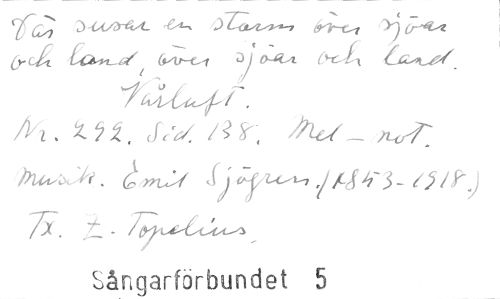 Där susar en storm över sjöar
och land, över sjöar och land.
Vårluft.
Nr. 292. Sid. 138. Mel-not.
Musik. Emil Sjögren. (1853-1918.)
Tx. Z. Topelius.
Sångarförbundet 5